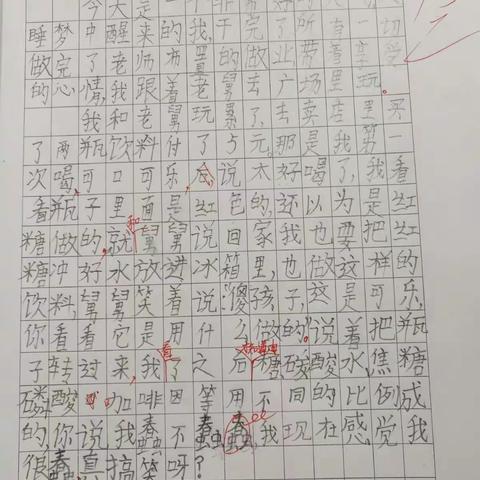 今天是一
睡梦中醒来的我,干完了所有一切
做完了老师布置的做业,带着享受
的心情,我跟着老舅去广场里玩。
我和老舅玩累了,去卖店里买
了两瓶饮料付了5元。那是我第一
次喝,可口可乐,说太好喝了,我看
看瓶子里面是红色的,还以为是红
糖做的,就和舅舅说回家我也要把红
糖冲好水放进冰箱里,也做这样的
饮料,舅舅笑着说:“傻孩子,这是可乐,
你看看它是用什么做的。”说着把瓶
子转过来,我看了之后糖,碳酸水,焦糖
磷酸咖啡因等用不同的比例成
的,你说我蠢不蠢,我现在感觉我
很蠢,真搞笑呀?